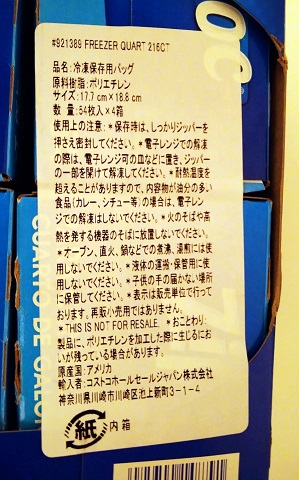 oc
#921389 FREEZER QUART 216CT
品名:冷凍保存用バッグ
原料樹脂:ポリエチレン
サイズ:17.7cm×18.8cm
数量:54枚入×4箱
使用上の注意:*保存時は、しっかりジッパーを
押さえ密封してください。*電子レンジでの解凍
の際は、電子レンジ可の皿などに置き、ジッパー
の一部を開けて解凍してください。*耐熱温度を
超えることがありますので、内容物が油分の多い
食品(カレー、シチュー等)の場合は、電子レン
ジでの解凍はしないでください。*火のそばや高
熱を発する機器のそばに放置しないでください。
*オーブン、直火、鍋などでの煮沸、湯煎には使
用しないでください。*液体の運搬・保管用に使
用しないでください。*子供の手の届かない場所
に保管してください。*表示は販売単位で行って
おります。再販小売用ではありません。
*THIS IS NOT FOR RESALE. *おことわり:
製品に、ポリエチレンを加工した際に生じるにお
いが残っている場合があります。
原産国:アメリカ
輸入者:コストコホールセールジャパン株式会社
神奈川県川崎市川崎区池上新町3-1-4
紙 内箱
CUARTO DE GALÓ